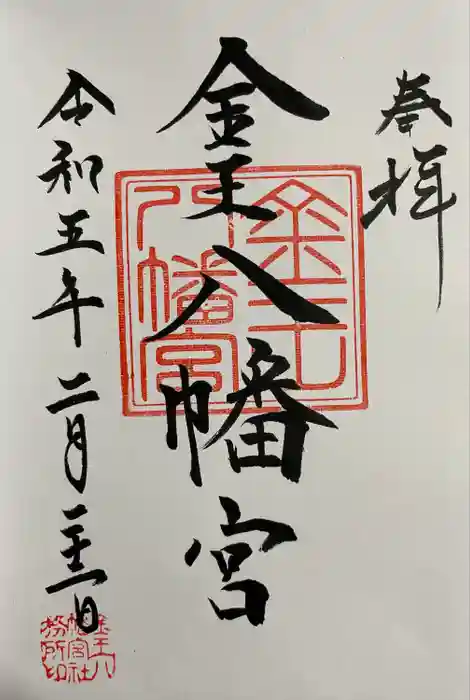 奉拝
金王八幡宮
令和五年二月二十一日
金王
八幡宮
金王八
幡宮社
務所印